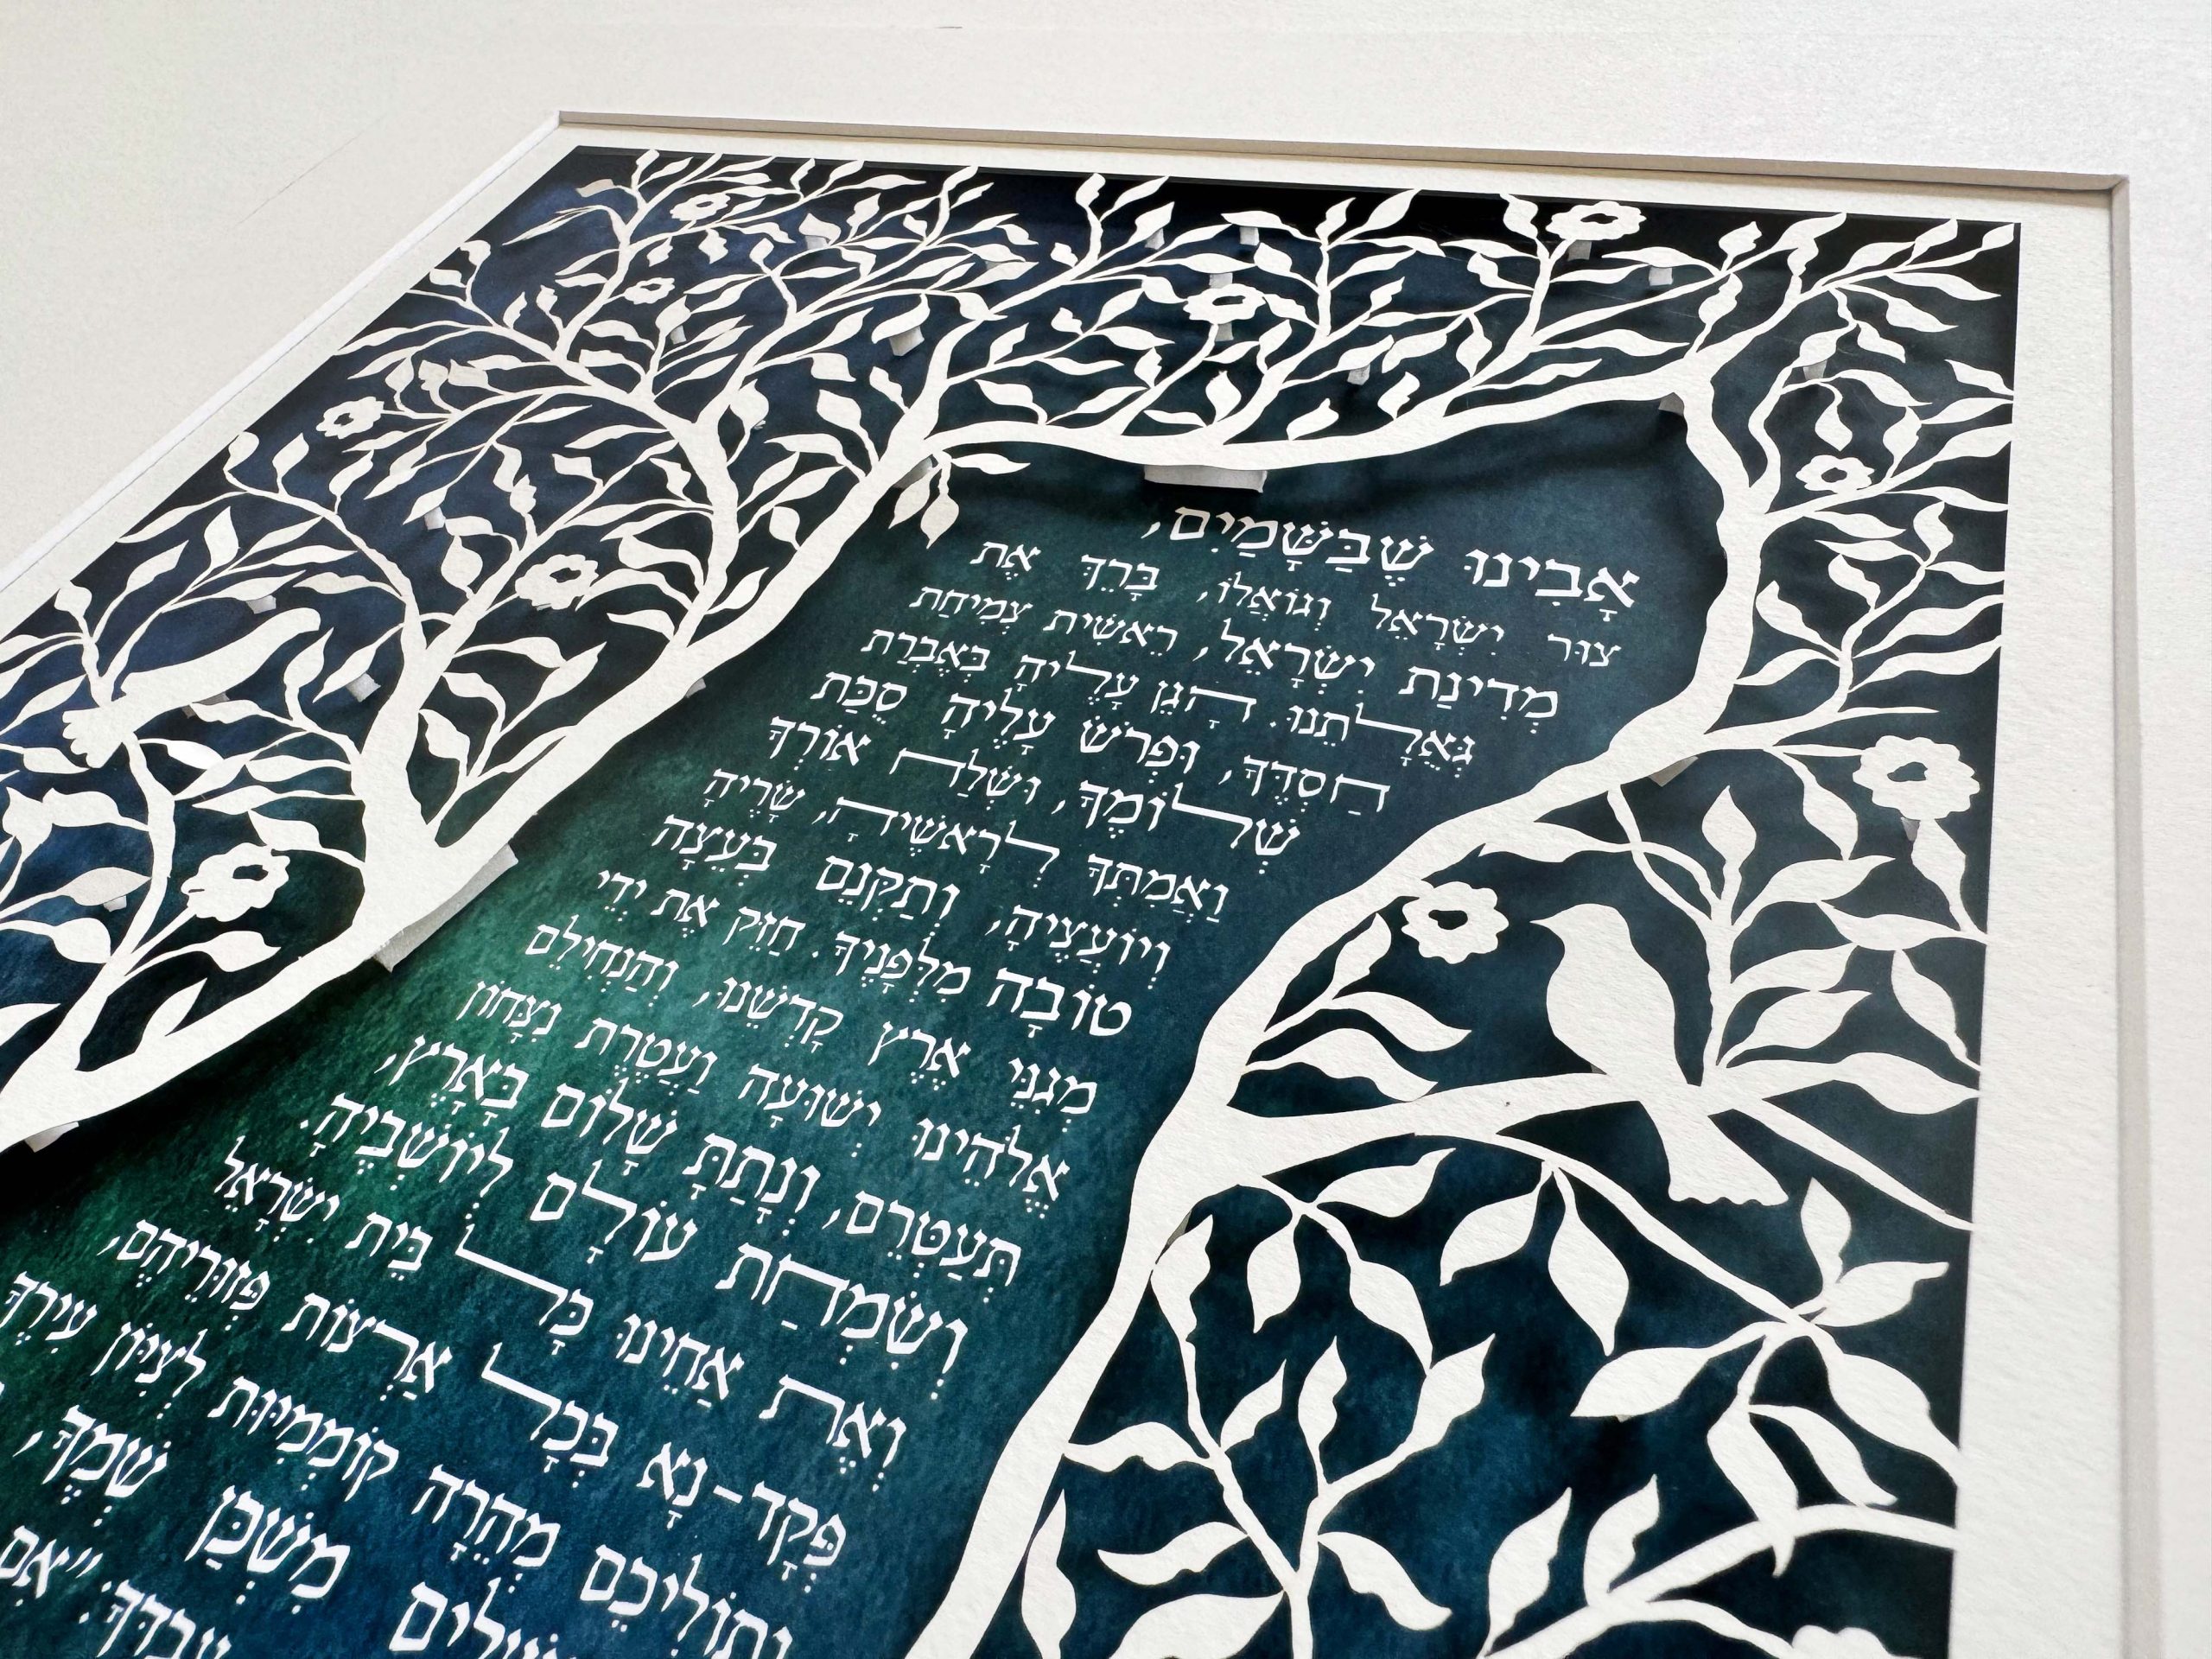 אָבִינוּ שֶׁבַּשָּׁמַיִם,
צוּר יִשְׂרָאֵל וְגוֹאֲלוֹ, בָּרֵךְ אֶת
מְדִינַת יִשְׂרָאֵל, רֵאשִׁית צְמִיחַת
גְּאֻלָּתֵנוּ. הָגֵן עָלֶיהָ בְּאֶבְרַת
חַסְדֶּךָ, וּפְרֹשׂ עָלֶיהָ סֻכַּת
שְׁלוֹמֶךָ, וּשְׁלַח אוֹרְךָ
וַאֲמִתְּךָ לְרָאשֶׁיהָ, שָׂרֶיהָ
וְיוֹעֲצֶיהָ, וְתַקְּנֵם בְּעֵצָה
טוֹבָה מִלְּפָנֶיךָ. חַזֵּק אֶת יְדֵי
מְגִנֵּי אֶרֶץ קָדְשֵׁנוּ, וְהַנְחִילֵם
אֱלֹהֵינוּ יְשׁוּעָה וַעֲטֶרֶת נִצָּחוֹן
תְּעַטְּרֵם, וְנָתַתָּ שָׁלוֹם בָּאָרֶץ,
וְשִׂמְחַת עוֹלָם לְיוֹשְׁבֶיהָ.
וְאֶת אַחֵינוּ כָּל בֵּית יִשְׂרָאֵל
פְּקָד-נָא בְּכָל אַרְצוֹת פְּזוּרֵיהֶם,
וְתוֹלִיכֵם מְהֵרָה קוֹמְמִיּוּת לְצִיּוֹן עִירֶךָ
מִשְׁכַּן שְׁמֶךָ,